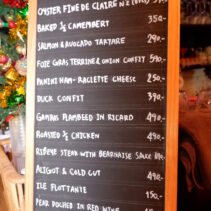 OYSTER FINE DE CLAIRE N°2
BAKED ½ CAMEMBERT 350.-
SALMON & AVOCADO TARTARE 290.-
FOIE GRAS TERRINE & ONION CONFIT 590.-
PANINI HAM-RACLETTE CHEESE 250.-
DUCK CONFIT 390.-
GAMBAS FLAMBEED IN RICARD 490.-
ROASTED ½ CHICKEN 490.-
RIBEYE STEAK WITH BEARNAISE SAUCE
ALIGOT & COLD CUT 490.-
ILE FLOTTANTE 150.-
PEAR POCHED IN RED WINE